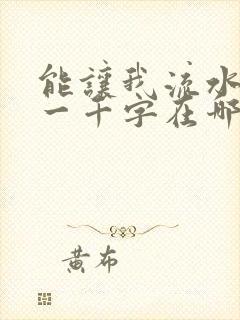 能讓我流水
一千字在哪
黃布